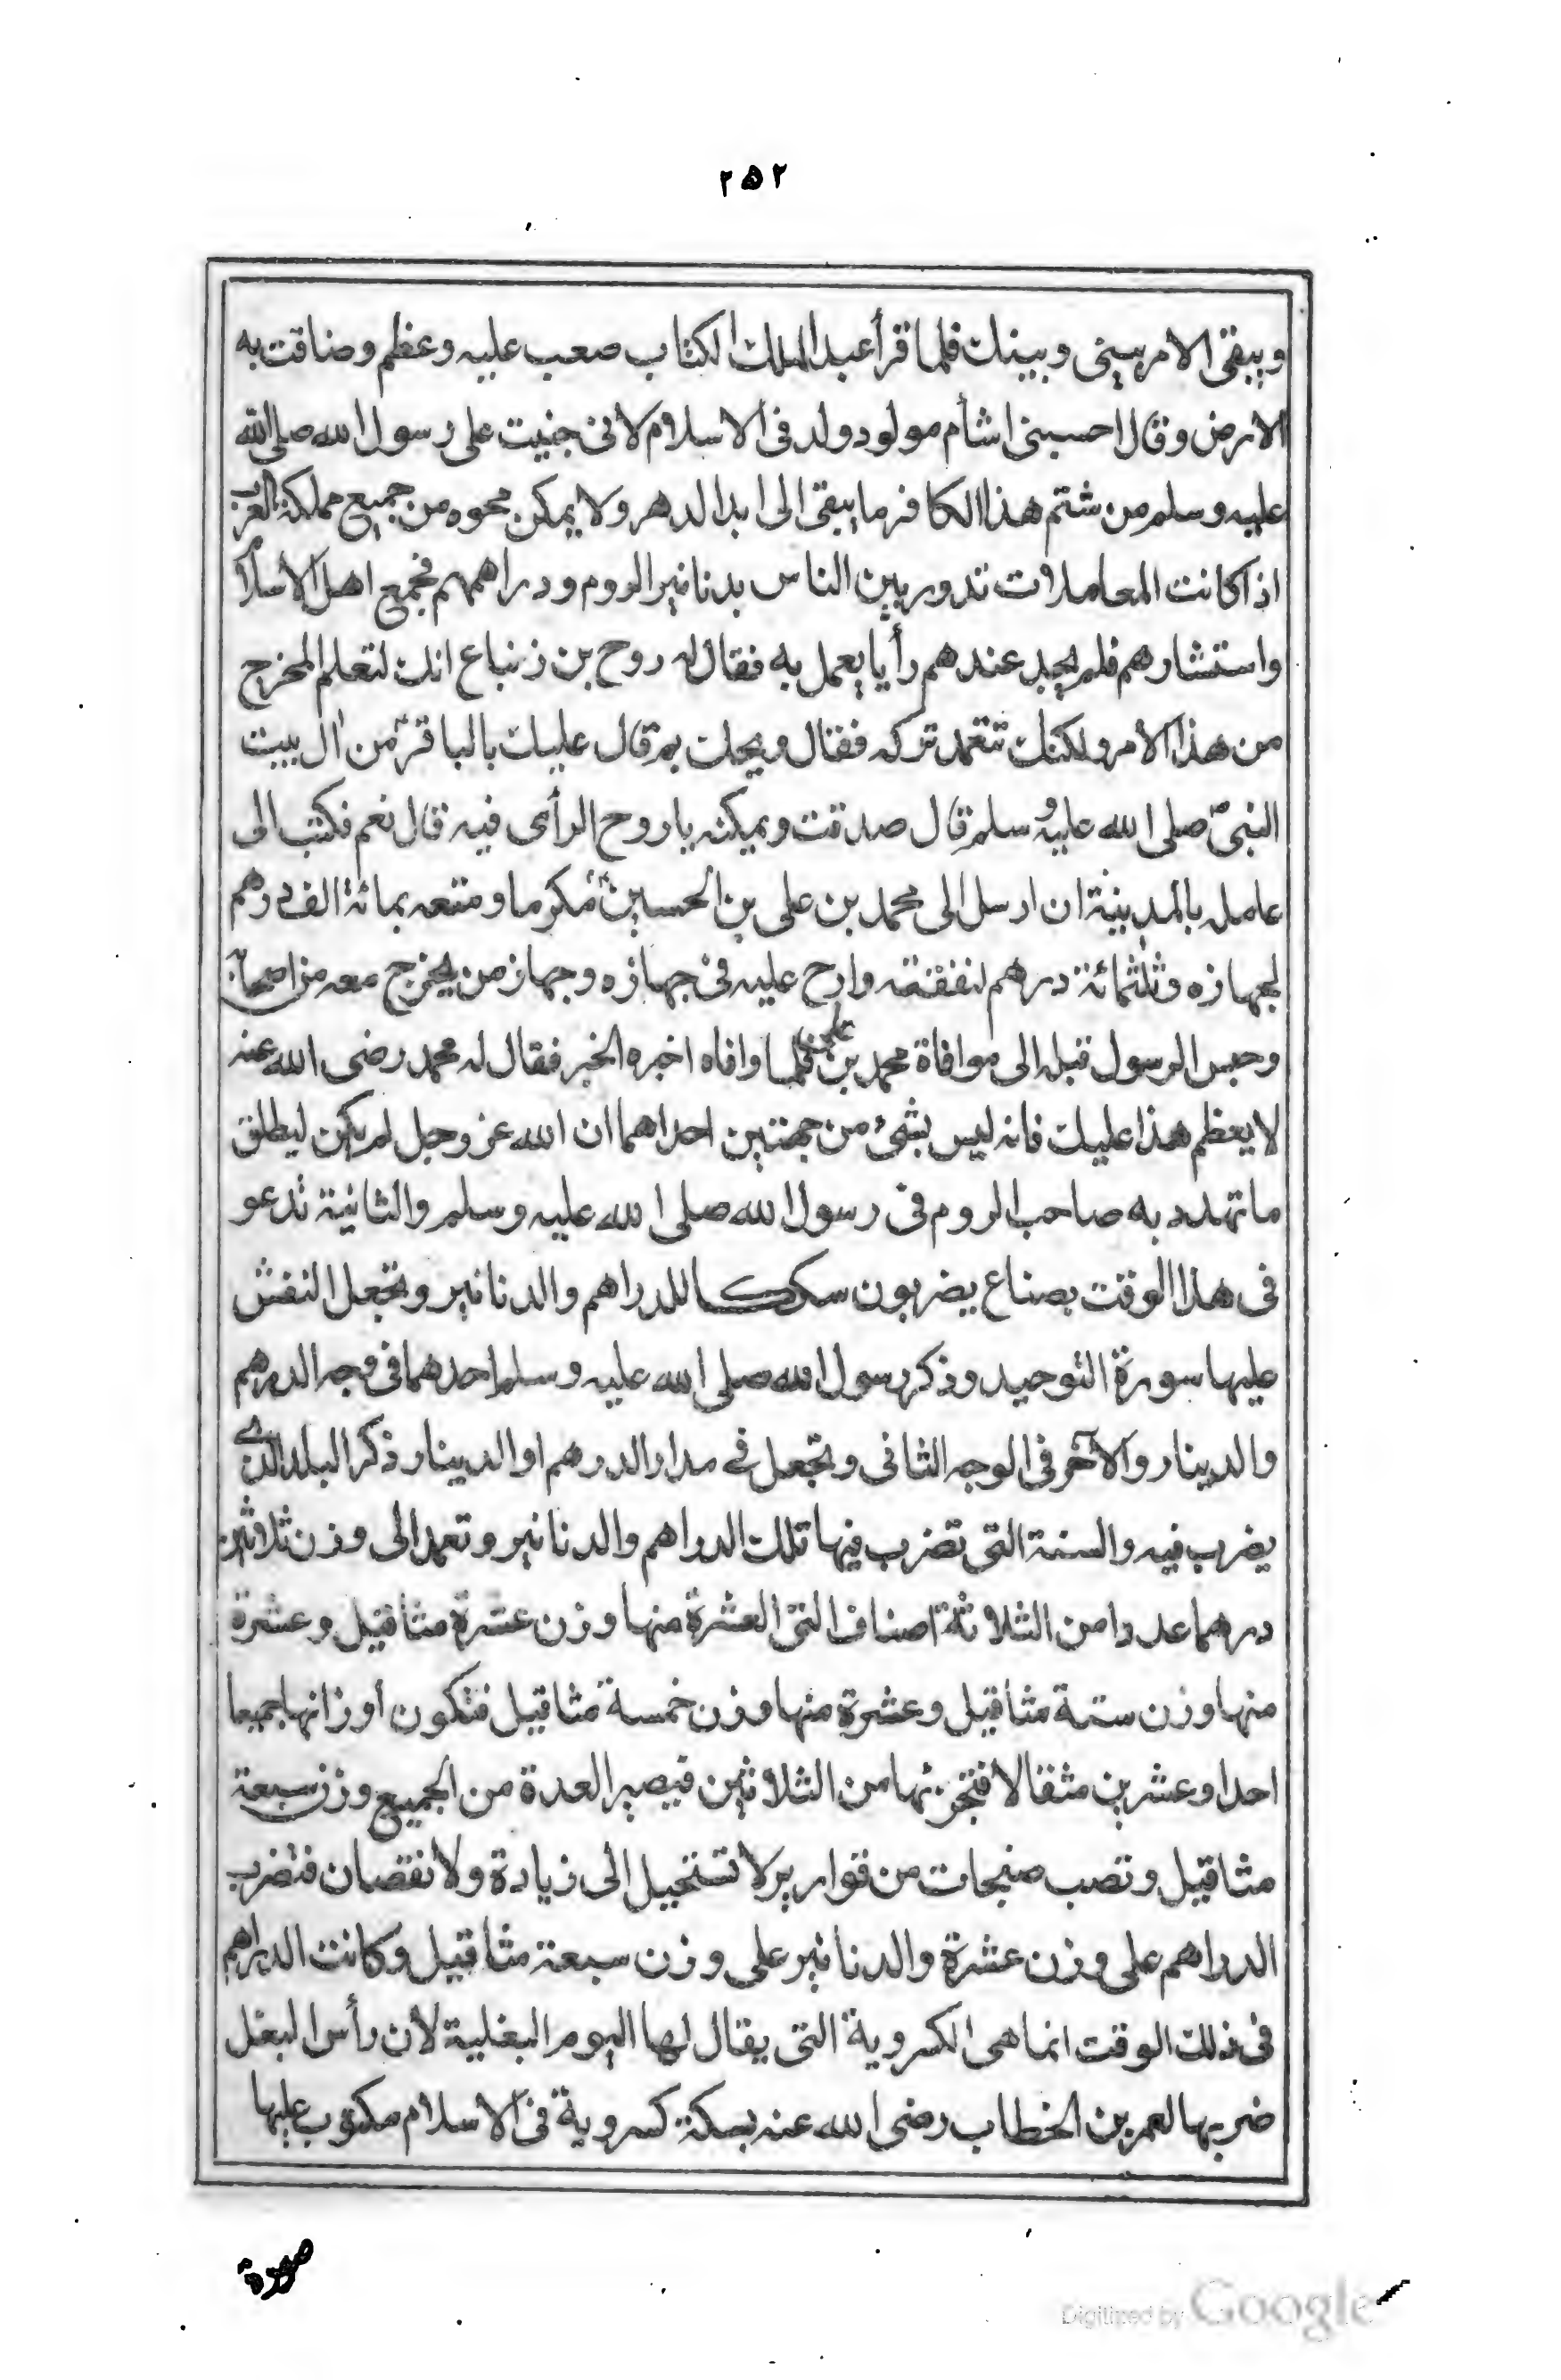 ٢٥٢
ويبقى الامر بيني وبينك فلما قرأ عبد الملك الكتاب صعب عليه وعظم وضاقت به
الارض وقال احسبنى اشأم مولود ولد فى الاسلام لانى جنيت على رسول الله صلى الله
عليه وسلم من شتم هذا الكافر ما يبقى الى ابد الدهر ولا يمكن محوه من جميع مملكة العرب
اذ كانت المعاملات تدور بين الناس بدنانير الروم ودراهمهم فجمع اهل الاسلام
واستشارهم فلم يجد عندهم رأيا يعمل به فقال له روح بن زنباع انك لتعلم المخرج
من هذا الامر ولكنك تتعمد تركه فقال ويحك بم قال عليك بالباقر من ال بيت
النبى صلى الله عليه وسلم قال صدقت ويمكنه ياروح الرأى فيه قال نعم فكتب الى
عامله بالمدينة ان ارسل الى محمد بن على بن الحسين مكرما ومتعه بمائة الف درهم
لجهازه وثلثمائة درهم لنفقته وارح عليه فى جهازه وجهاز من يخرج معه من اصحابه
وحبس الرسول قبله الى موافاة محمد بن على فلما وافاه اخبره الخبر فقال له محمد رضى الله عنه
لا يعظم هذا عليك فانه ليس بشئ من جهتين احداهما ان الله عز وجل لم يكن ليطلق
ما تهدد به صاحب الروم فى رسول الله صلى الله عليه وسلم والثانية تدعو
فى هذا الوقت بصناع يضربون سككا للدراهم والدنانير وتجعل النقش
عليها سورة التوحيد وذكر رسول الله صلى الله عليه وسلم احدهما فى وجه الدرهم
والدينار والآخر فى الوجه الثانى وتجعل فے مدار الدرهم او الدينار ذكر البلد الذے
يضرب فيه والسنة التى تضرب فيها تلك الدراهم والدنانير وتعمد الى وزن ثلاثين
درهما عددا من الثلاثة اصناف التى العشرة منها وزن عشرة مثاقيل وعشرة
منها وزن ستة مثاقيل وعشرة منها وزن خمسة مثاقيل فتكون اوزانها جميعا
احدا وعشرين مثقالا فتجزئها من الثلاثين فيصير العدة من الجميع وزن سبعة
مثاقيل وتصب صنجات من قوارير لا تستحيل الى زيادة ولا نقصان فتضرب
الدراهم على وزن عشرة والدنانير على وزن سبعة مثاقيل وكانت الدراهم
فى ذلك الوقت انما هى الكسروية التى يقال لها اليوم البغلية لان رأس البغل
ضربها لعمر بن الخطاب رضى الله عنه بسكة كسروية فى الاسلام مكتوب عليها
صورة
Digitized by Google